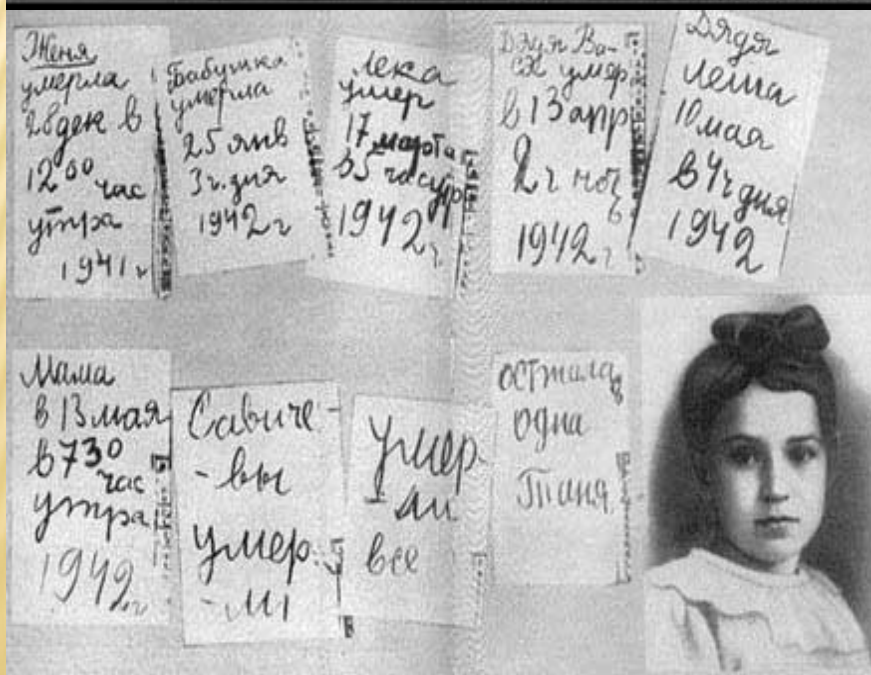 Женя
умерла
28 дек в
12⁰⁰ час
утра
1941 г
Бабушка
умерла
25 янв
3 ч. дня
1942 г
Лека
умер
17 марта
в 5 час утр
1942 г.
Дядя Ва-
ся умер
в 13 апр
2 ч ноч
ь
1942 г
Дядя
Леша
10 мая
в 4 ч дня
1942
Мама
в 13 мая
в 7³⁰
час
утра
1942 г
Савиче-
-вы
умер
-ли
умер
-ли
все
осталась
одна
Таня